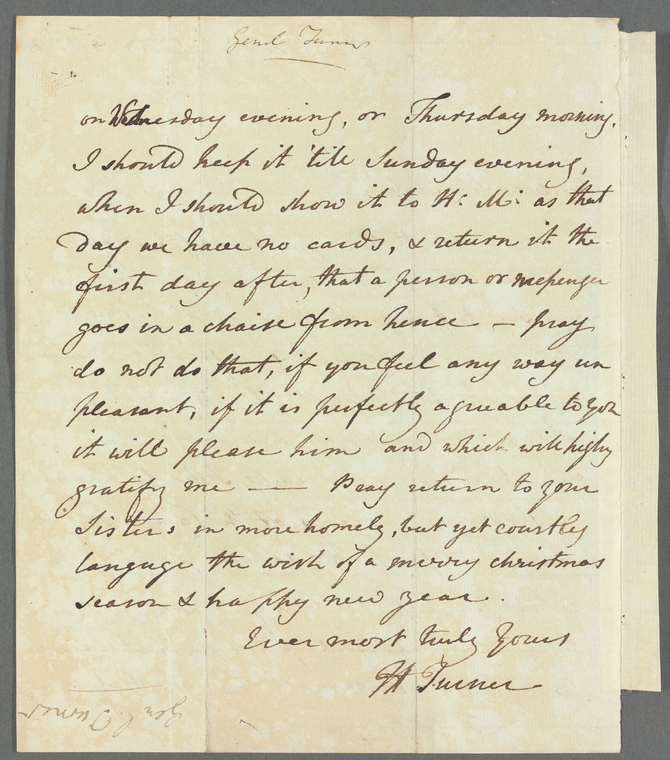 Genl Turner
on Wednesday evening, or Thursday morning.
I should keep it 'till Sunday evening,
when I should show it to H: M: as that
day we have no cards, & return it the
first day after, that a person or messenger
goes in a chaise from hence — pray
do not do that, if you feel any way un
pleasant, if it is perfectly agreeable to you
it will please him and which will highly
gratify me —— Pray return to your
Sisters in more homely, but yet courtly
languge the wish of a merry christmas
season & happy new year.
Ever most truly yours
H Turner
Genl. Turner